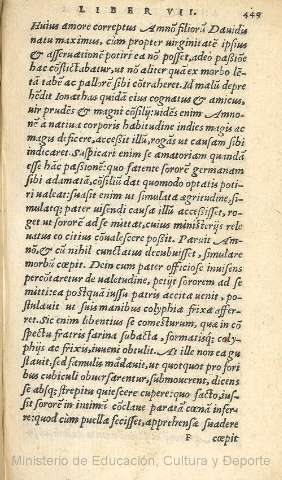 LIBER VII. 449
Huius amore correptus Amnõ filiorũ Dauidis
natu maximus, cùm propter uirginitatẽ ipsius
& asseruationẽ potiri ea nõ posset, adeo passiõe
hac cõflictabatur, ut nõ aliter quá ex morbo lẽ-
tã tabẽ ac pallorẽ sibi cõtraheret. Id malũ depre
hẽdit Ionathas quidã eius cognatus & amicus,
uir prudẽs & magni cõsilij: uidẽs enim Amno-
nẽ à natiua corporis habitudine indies magis ac
magis dificere, accessit illũ, rogás ut causam sibi
indicaret. Saspicari enim se amatoriam quandã
esse hãc passionẽ: quo fatente sororẽ germanam
sibi adamatã, cõsiliũ dat quomodo optatis poti
ri ualeat: suasit enim ut simulata ægritudine, si-
mulatq; pater uisendi causa illũ accessisset, ro-
get ut sororẽ ad se mittat, cuius ministerijs rele
uatus tò citius cõualescere possit. Paruit Am-
nõ, & cũ nihil cunctatus decubuisset, simulare
morbũ cœpit. Dein cum pater officiose inuisens
percõtaretur de ualetudine, petijt sororem ad se
mitti: ea postquã iussu patris accita uenit, po-
stulauit ut suis manibus colyphia frixa affer-
ret. Sic enim libentius se comesturum, quæ in cõ
spectu fratris farina subacta, formatisq; coly-
phijs ac frixis, iuueni obtulit. At ille non ea gu
stauit, sed famulis mãdauit, ut quotquot pro fori
bus cubiculi obuersarentur, submouerent, dicens
se absq; strepitu quiescere cupere: quo facto, ius-
sit sororẽ in intimũ cõclaue paratã cœnã infer-
re: quod cum puella fecisset, apprehensæ suadere
F cœpit
Ministerio de Educación, Cultura y Deporte